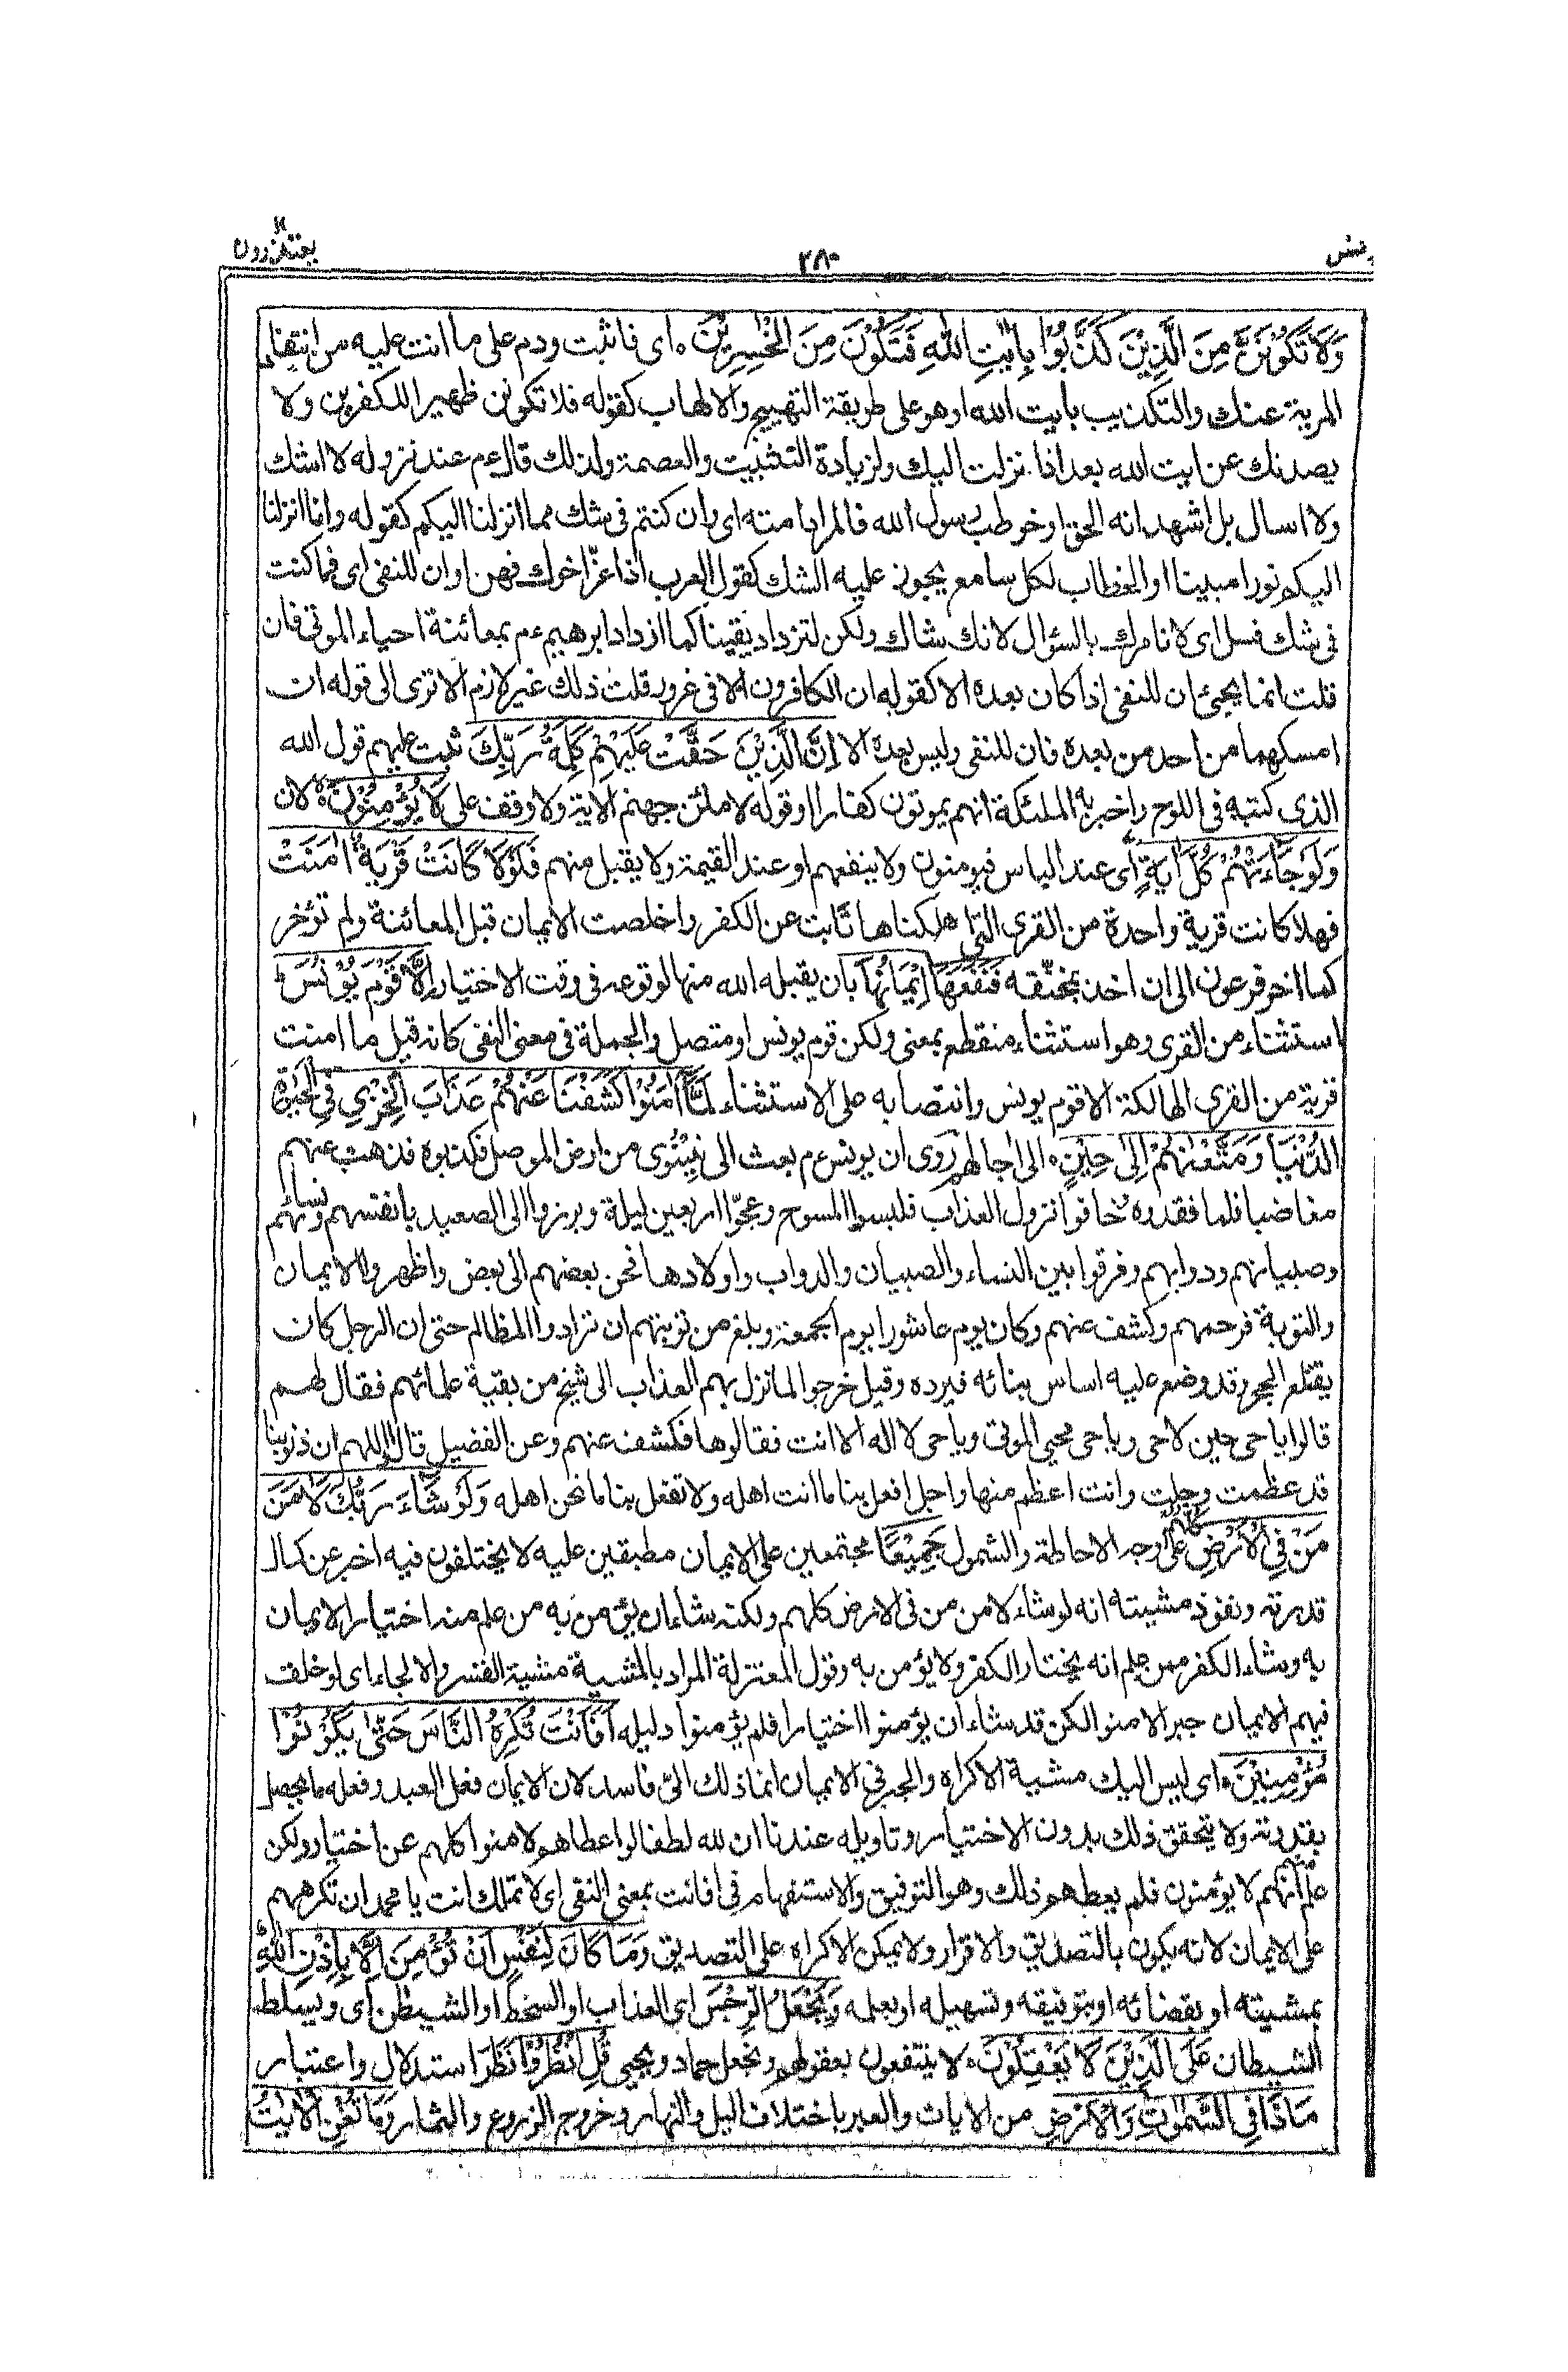 يعتذرون ١١
٢٨٠
يونس
وَلَا تَكُوْنَنَّ مِنَ الَّذِيْنَ كَذَّبُوْا بِاٰيٰتِ اللّٰهِ فَتَكُوْنَ مِنَ الْخٰسِرِيْنَ ه اى فاثبت ودم على ما انت عليه من انتفاء
المرية عنك والتكذيب بايت الله او هو على طريقة التهييج والالهاب كقوله فلا تكونن ظهيرا للكفرين ولا
يصدنك عن ايت الله بعد اذ انزلت اليك ولزيادة التثبيت والعصمة ولذلك قال ءم عند نزوله لا اشك
ولا اسال بل اشهد انه الحق او خوطب رسول الله فالمراد امته اى وان كنتم فى شك مما انزلنا اليكم كقوله وانا انزلنا
اليكم نورا مبينا او الخطاب لكل سامع يجوز عليه الشك كقول العرب اذا عزّ اخوك فهن او ان للنفى اى فما كنت
فى شك فسل اى لا نامرك بالسؤال لانك شاك ولكن لتزداد يقينا كما ازداد ابرهيم ءم بمعائنة احياء الموتى فان
قلت انما يجئ ان للنفى اذا كان بعده الا كقوله ان الكافرون الا فى غرور قلت ذلك غير لازم الا ترى الى قوله ان
امسكهما من احد من بعده فان للنفى وليس بعده الا اِنَّ الَّذِيْنَ حَقَّتْ عَلَيْهِمْ كَلِمَةُ رَبِّكَ ثبت عليهم قول الله
الذى كتبه فى اللوح واخبر به الملئكة انهم يموتون كفارا او قوله لاملئن جهنم الاية ولا وقف على لَا يُؤْمِنُوْنَ ه لان
وَلَوْ جَآءَتْهُمْ كُلُّ اٰيَةٍ اى عند الياس فيومنون ولا ينفعهم او عند القيمة ولا يقبل منهم فَلَوْلَا كَانَتْ قَرْيَةٌ اٰمَنَتْ
فهلا كانت قرية واحدة من القرى التى اهلكناها تابت عن الكفر واخلصت الايمان قبل المعائنة ولم تؤخر
كما اخر فرعون الى ان اخذ بمخنّقه فَنَفَعَهَآ اِيْمَانُهَآ بان يقبله الله منها لوقوعه فى وقت الاختيار اِلَّا قَوْمَ يُوْنُسَ ط
استثناء من القرى وهو استثناء منقطع بمعنى ولكن قوم يونس او متصل والجملة فى معنى النفى كانه قيل ما امنت
قرية من القرى الهالكة الا قوم يونس وانتصابه على الاستثناء لَمَّآ اٰمَنُوْا كَشَفْنَا عَنْهُمْ عَذَابَ الْخِزْيِ فِي الْحَيٰوةِ
الدُّنْيَا وَمَتَّعْنٰهُمْ اِلٰى حِيْنٍ ه الى اجالهم رُوى ان يونس ءم بعث الى نِينَوى من ارض الموصل فكذبوه فذهب عنهم
مغاضبا فلما فقدوه خافوا نزول العذاب فلبسوا المسوح وعجّوا اربعين ليلة وبرزوا الى الصعيد بانفسهم ونسائهم
وصبيانهم ودوابهم وفرقوا بين النساء والصبيان والدواب واولادها فحن بعضهم الى بعض واظهروا الايمان
والتوبة فرحمهم وكشف عنهم وكان يوم عاشورا يوم الجمعة وبلغ من توبتهم ان ترادوا المظالم حتى ان الرجل كان
يقتلع الحجر وقد وضع عليه اساس بنائه فيرده وقيل خرجوا لما نزل بهم العذاب الى شيخ من بقية علمائهم فقال لهم
قالوا يا حى حين لا حى ويا حى محيى الموتى ويا حى لا اله الا انت فقالوها فكشف عنهم وعن الفضيل قالوا اللهم ان ذنوبنا
قد عظمت وجلت وانت اعظم منها واجل افعل بنا ما انت اهله ولا تفعل بنا ما نحن اهله وَلَوْ شَآءَ رَبُّكَ لَاٰمَنَ
مَنْ فِي الْاَرْضِ كُلُّهُمْ على وجه الاحاطة والشمول جَمِيْعًا مجتمعين على الايمان مطبقين عليه لا يختلفون فيه اخبر عن كمال
قدرته ونفوذ مشيته انه لو شاء لامن من فى الارض كلهم ولكنه شاء ان يؤمن به من علم منه اختيار الايمان
به وشاء الكفر ممن علم انه يختار الكفر ولا يؤمن به وقول المعتزلة المراد بالمشية مشية القسر والالجاء اى لو خلق
فيهم الايمان جبرا لامنوا لكن قد شاء ان يؤمنوا اختيارا فلم يؤمنوا دليله اَفَاَنْتَ تُكْرِهُ النَّاسَ حَتّٰى يَكُوْنُوْا
مُؤْمِنِيْنَ ه اى ليس اليك مشية الاكراه والجبر فى الايمان انما ذلك الىّ فاسد لان الايمان فعل العبد وفعله ما يحصل
بقدرته ولا يتحقق ذلك بدون الاختيار وتاويله عندنا ان لله لطفا لو اعطاهم لامنوا كلهم عن اختيار ولكن
علم انهم لا يؤمنون فلم يعطهم ذلك وهو التوفيق والاستفهام فى افانت بمعنى النفى اى لا تملك انت يا محمد ان تكرههم
على الايمان لانه يكون بالتصديق والاقرار ولا يمكن الاكراه على التصديق وَمَا كَانَ لِنَفْسٍ اَنْ تُؤْمِنَ اِلَّا بِاِذْنِ اللّٰهِ
بمشيته او بقضائه او بتوفيقه وتسهيله او بعلمه وَيَجْعَلُ الرِّجْسَ اى العذاب او السخط او الشيطن اى ويسلط
الشيطان عَلَى الَّذِيْنَ لَا يَعْقِلُوْنَ ه لا ينتفعون بعقولهم ونجعل حماد ويحيى قُلِ انْظُرُوْا نظر استدلال واعتبار
مَاذَا فِي السَّمٰوٰتِ وَالْاَرْضِ من الايات والعبر باختلاف اليل والنهار وخروج الزروع والثمار وَمَا تُغْنِي الْاٰيٰتُ